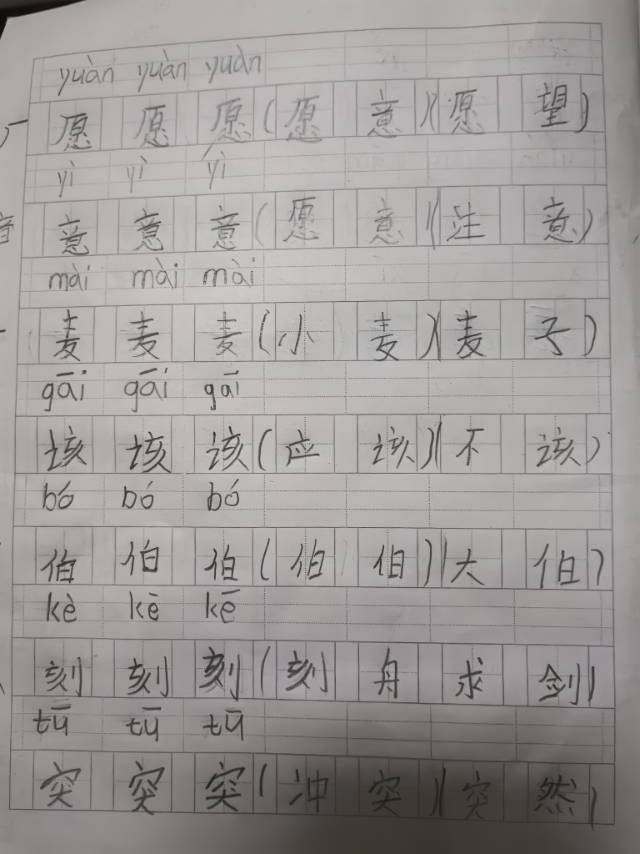 yuàn yuàn yuàn
愿 愿 愿(愿 意)(愿 望)
yì yì yì
意 意 意(愿 意)(注 意)
mài mài mài
麦 麦 麦(小 麦)(麦 子)
gāi gāi gāi
该 该 该(应 该)(不 该)
bó bó bó
伯 伯 伯(伯 伯)(大 伯)
kè kè kē
刻 刻 刻(刻 舟 求 剑)
tū tū tū
突 突 突(冲 突)(突 然)